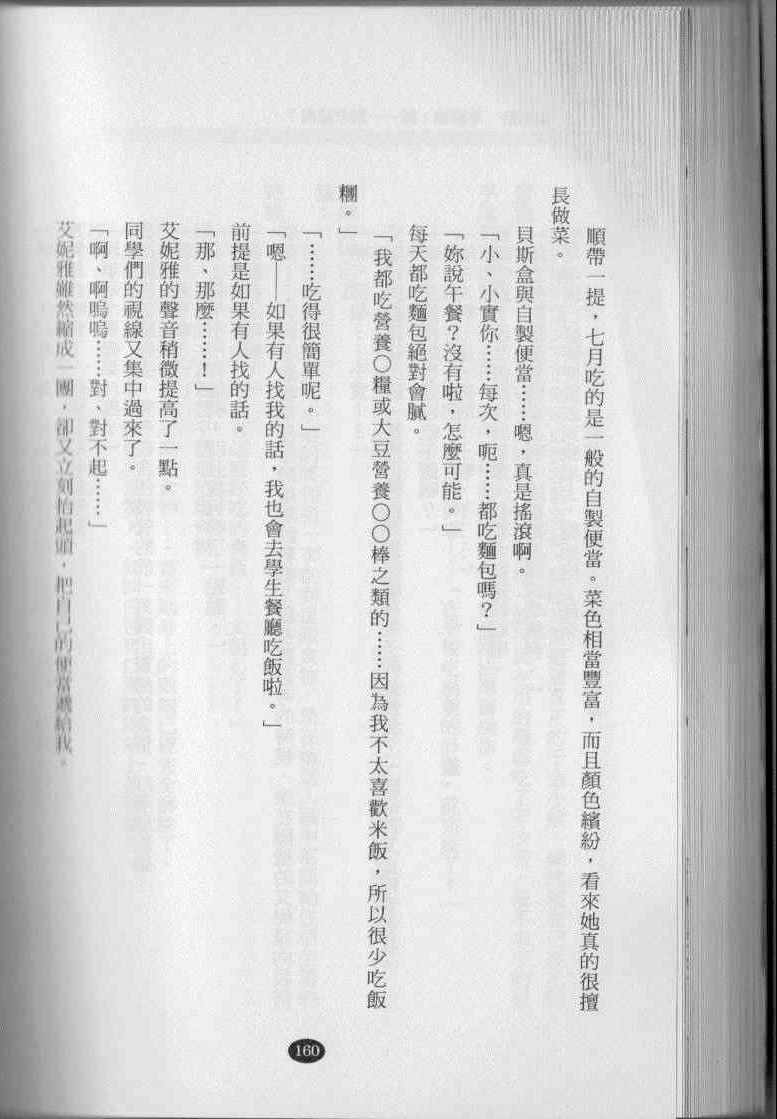 順帶一提，七月吃的是一般的自製便當。菜色相當豐富，而且顏色繽紛，看來她真的很擅
長做菜。
貝斯盒與自製便當……嗯，真是搖滾啊。
「小、小實你……每次，呃……都吃麵包嗎？」
「妳說午餐？沒有啦，怎麼可能。」
每天都吃麵包絕對會膩。
「我都吃營養〇糧或大豆營養〇〇棒之類的……因為我不太喜歡米飯，所以很少吃飯
糰。」
「……吃得很簡單呢。」
「嗯——如果有人找我的話，我也會去學生餐廳吃飯啦。」
前提是如果有人找的話。
「那、那麼……！」
艾妮雅的聲音稍微提高了一點。
同學們的視線又集中過來了。
「啊、啊嗚嗚……對、對不起……」
艾妮雅雖然縮成一團，卻又立刻抬起頭，把自己的便當遞給我。
160